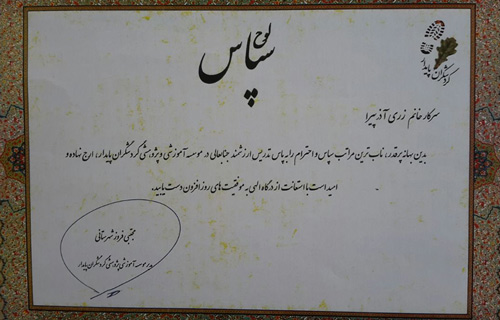 لوح سپاس
گردشگران پایدار
سرکار خانم زری آذرپیرا
بدین بهانه پرقدر، ناب ترین مراتب سپاس و احترام را به پاس تدریس ارزشمند جنابعالی در موسسه آموزشی و پژوهشی گردشگران پایدار، ارج نهاده و
امید است با استعانت از درگاه الهی به موفقیت های روز افزون دست یابید.
مجتبی فروز شهرستانی
مدیر موسسه آموزشی پژوهشی گردشگران پایدار